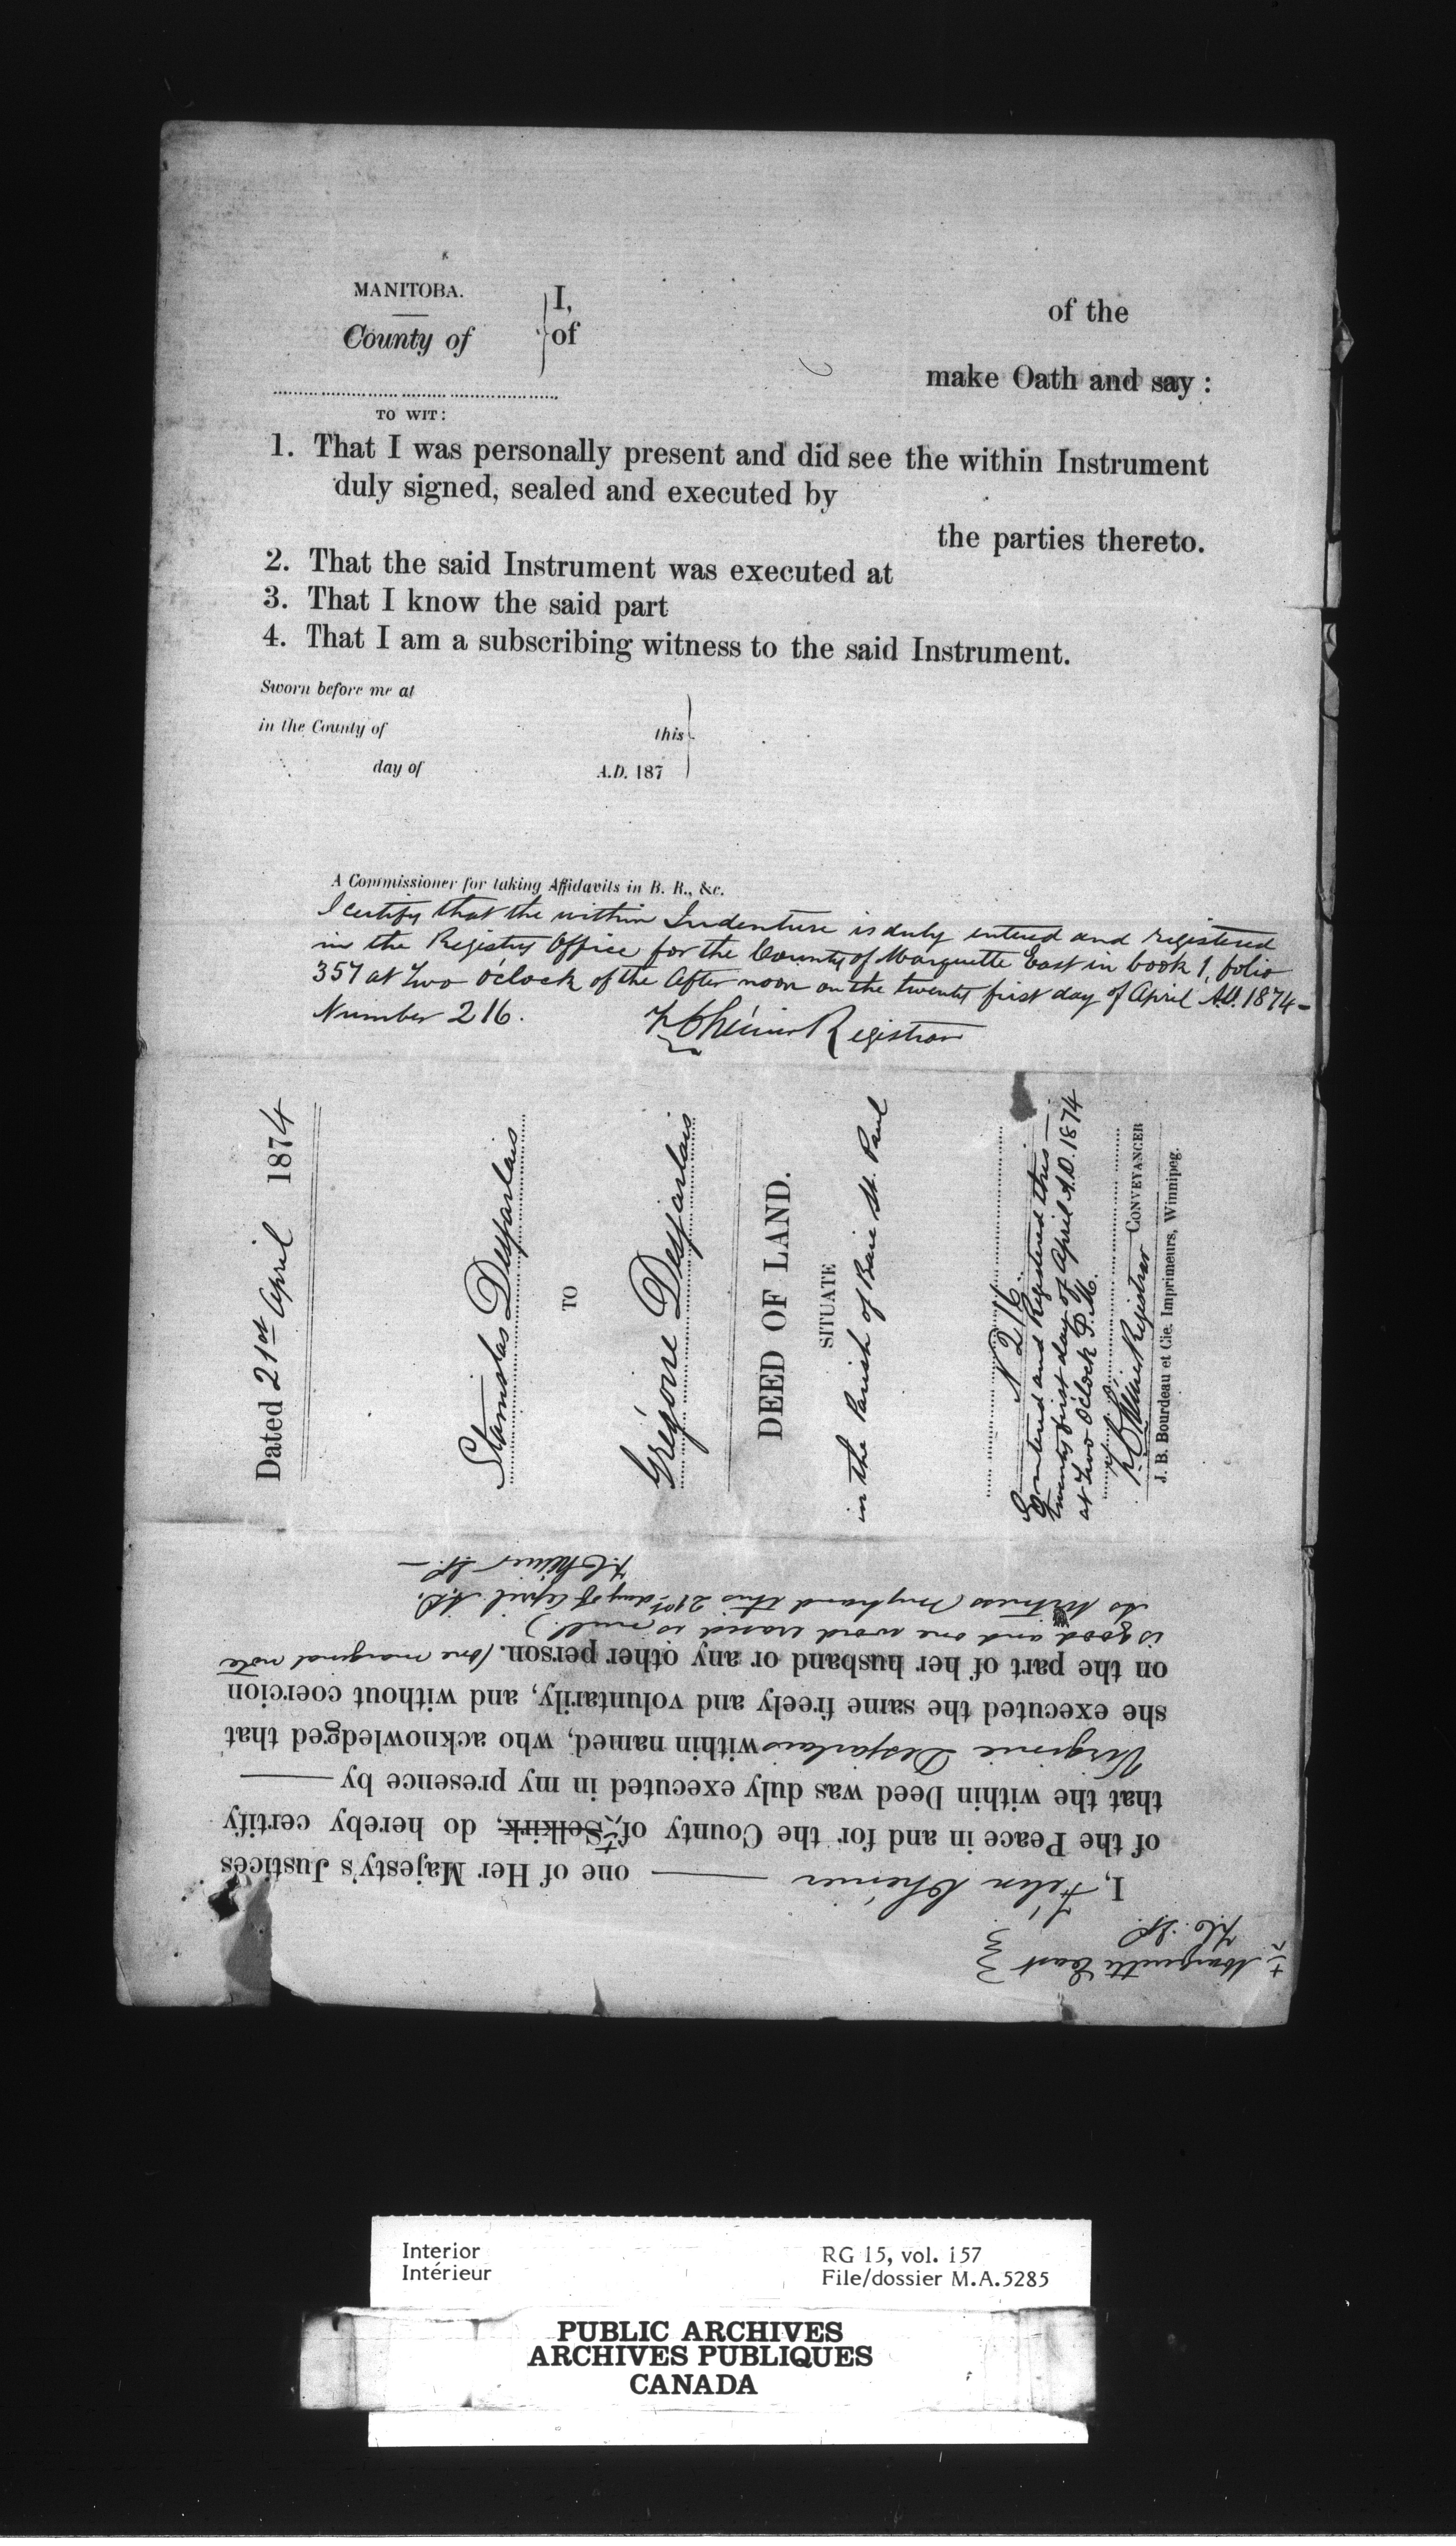 MANITOBA.
County of
I,
of
of the
make Oath and say :
TO WIT:
1. That I was personally present and did see the within Instrument
duly signed, sealed and executed by
the parties thereto.
2. That the said Instrument was executed at
3. That I know the said part
4. That I am a subscribing witness to the said Instrument.
Sworn before me at
in the County of this
day of A.D. 187
A Commissioner for taking Affidavits in B. R., &c.
I certify that the within Indenture is duly entered and registered
in the Registry Office for the County of Marquette East in book 1, folio
357 at two o'clock of the After noon on the twenty first day of April A.D. 1874 -
Number 216. F. Chénier Registrar
Dated 21st April 1874
Stanislas Desjarlais
TO
Grégoire Desjarlais
DEED OF LAND.
SITUATE
in the Parish of Baie St. Paul
N 216.
Entered and Registered this
twenty first day of April A.D. 1874
at two O'clock P.M.
F. Chénier Registrar CONVEYANCER
J. B. Bourdeau et Cie. Imprimeurs, Winnipeg.
± Marquette East
F.C. J.P.
I, Félix Chénier one of Her Majesty's Justices
of the Peace in and for the County of ± Selkirk, do hereby certify
that the within Deed was duly executed in my presence by
Virginie Desjarlais within named, who acknowledged that
she executed the same freely and voluntarily, and without coercion
on the part of her husband or any other person. (one marginal note
is good and one word erased is null.)
As Witness my hand this 21st day of April A.D.
F. Chénier J.P. -
Interior
Intérieur
RG 15, vol. 157
File/dossier M.A.5285
PUBLIC ARCHIVES
ARCHIVES PUBLIQUES
CANADA